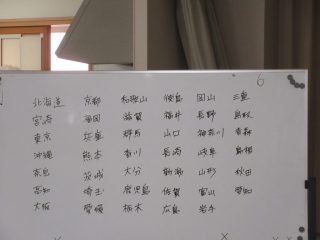 6
北海道 京都 和歌山 徳島 岡山 三重
宮崎 福岡 滋賀 福井 長野 鳥取
東京 兵庫 群馬 山口 神奈川 青森
沖縄 熊本 香川 長崎 岐阜 島根
茨城 大分 新潟 山形 秋田
高知 埼玉 鹿児島 佐賀 富山 愛知
大阪 愛媛 栃木 広島 岩手